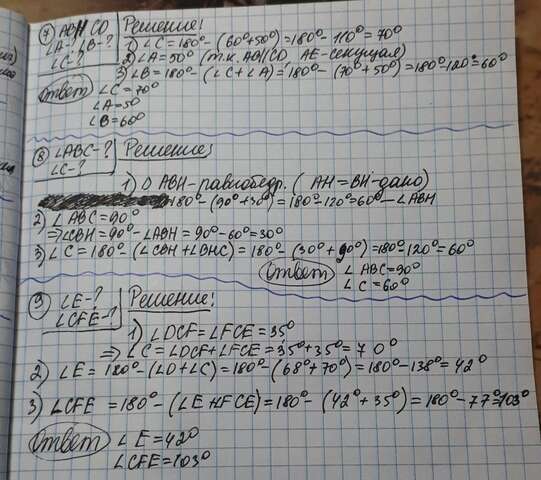 ⑦ AB||CD
∠A-? ∠B-?
∠C-?
Решение:
1) ∠C = 180° - (60°+50°) = 180° - 110° = 70°
2) ∠A = 50° (т.к. AB||CD, AE-секущая)
3) ∠B = 180° - (∠C + ∠A) = 180° - (70° + 50°) = 180° - 120° = 60°
Ответ
∠C = 70°
∠A = 50
∠B = 60°
⑧ ∠ABC-?
∠C-?
Решение:
1) ABH-равнобедр. (AH = BH-дано)
180° - (90° + 30°) = 180° - 120° = 60° - ∠ABH
2) ∠ABC = 90°
⇒ ∠CBH = 90° - ∠ABH = 90° - 60° = 30°
3) ∠C = 180° - (∠CBH + ∠BHC) = 180° - (30° + 90°) = 180° - 120° = 60°
Ответ
∠ABC = 90°
∠C = 60°
⑨ ∠E-?
∠CFE-?
Решение:
1) ∠DCF = ∠FCE = 35°
⇒ ∠C = ∠DCF + ∠FCE = 35° + 35° = 70°
2) ∠E = 180° - (∠D + ∠C) = 180° - (68° + 70°) = 180° - 138° = 42°
3) ∠CFE = 180° - (∠E + ∠FCE) = 180° - (42° + 35°) = 180° - 77° = 103°
Ответ
∠E = 42°
∠CFE = 103°